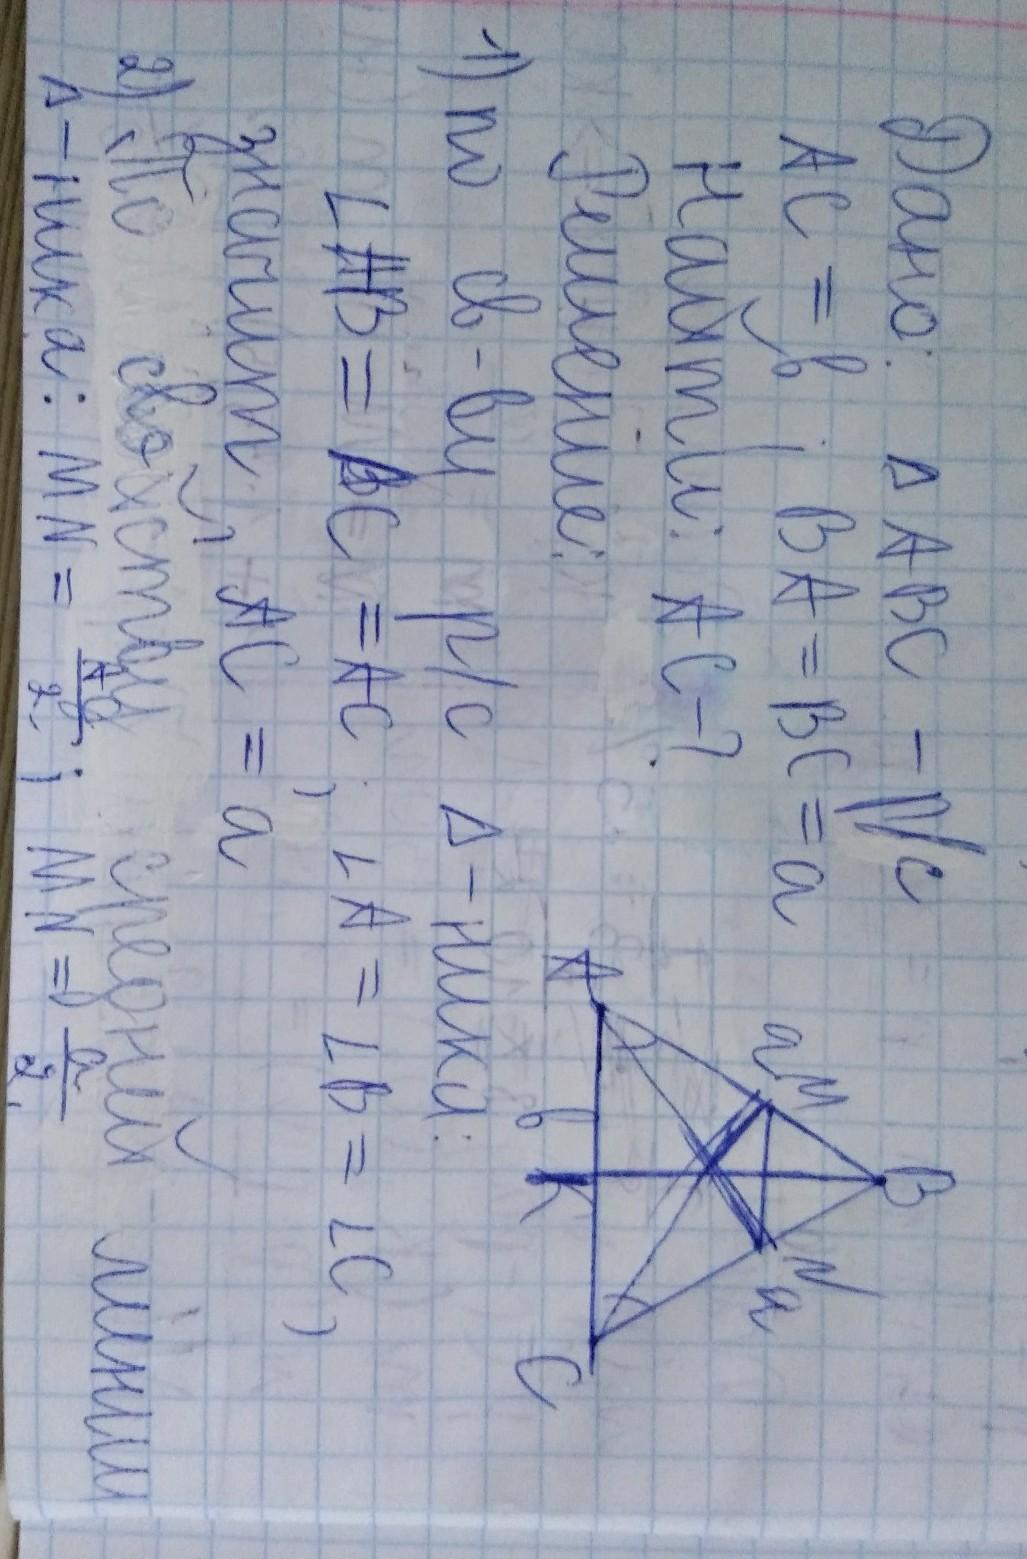 Дано: Δ ABC - р/с
AC = b; BA = BC = a
Найти: AC-?
Решение:
1) по св-ву р/с Δ-ника:
∠AB = BC = AC; ∠A = ∠B = ∠C,
значит AC = a
2) По свойству средний линии
Δ-ника: MN = AC/2; MN = a/2
B
M
N
a
a
A
b
K
C